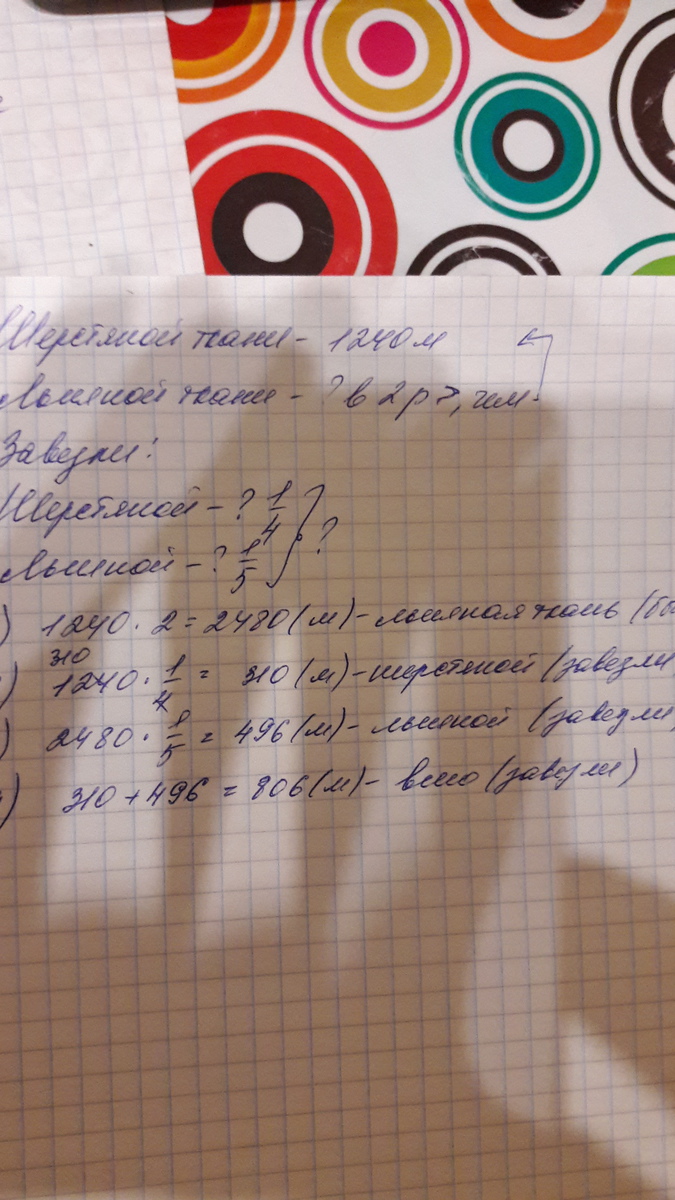 Шерстяной ткани - 1240 м
Льняной ткани - ? в 2 р >, чем
Завезли:
Шерстяной - ? 1/4
Льняной - ? 1/5 } ?
) 1240 · 2 = 2480 (м) - льняная ткань (бы
310
) 1240 · 1/4 = 310 (м) - шерстяной (завезли
) 2480 · 1/5 = 496 (м) - льняной (завезли)
) 310 + 496 = 806 (м) - всего (завезли)